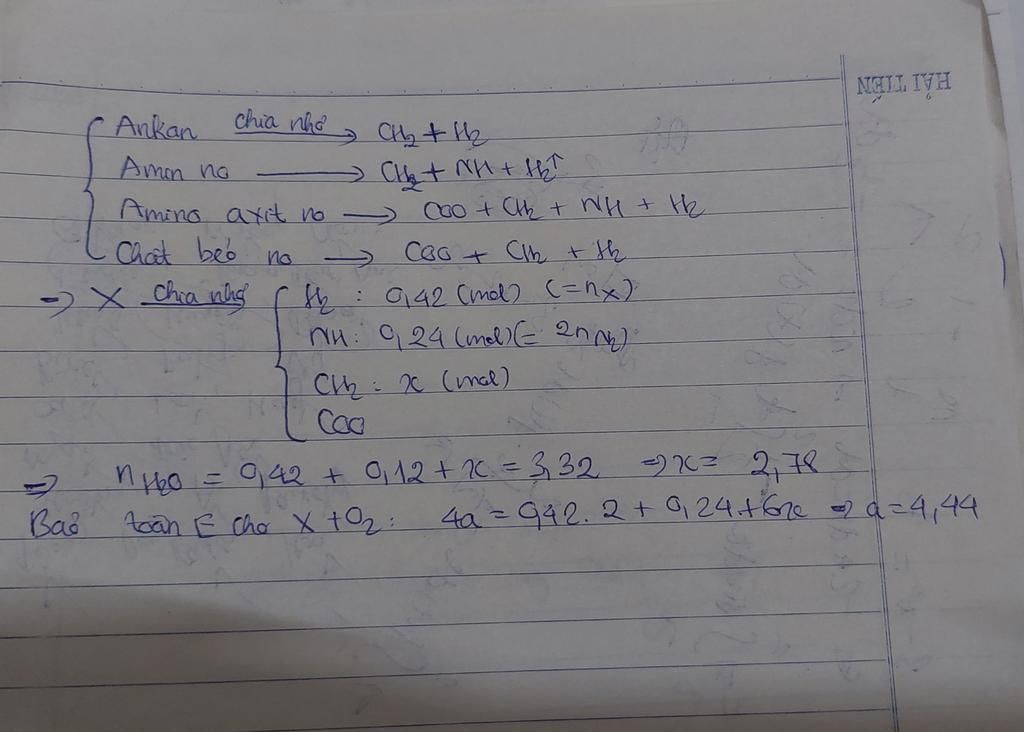 HẢI TIẾN
Ankan chia nhỏ → CH₂ + H₂
Amin no → CH₂ + NH + H₂↑
Amino axit no → COO + CH₂ + NH + H₂
Chất béo no → COO + CH₂ + H₂
=> X chia nhỏ H₂ : 0,42 (mol) (= nx)
NH : 0,24 (mol) (= 2n N₂)
CH₂ : x (mol)
COO
=> nH₂O = 0,42 + 0,12 + x = 3,32 => x = 2,78
Bảo toàn E cho X + O₂ : 4a = 0,42 . 2 + 0,24 + 6x => a = 4,44